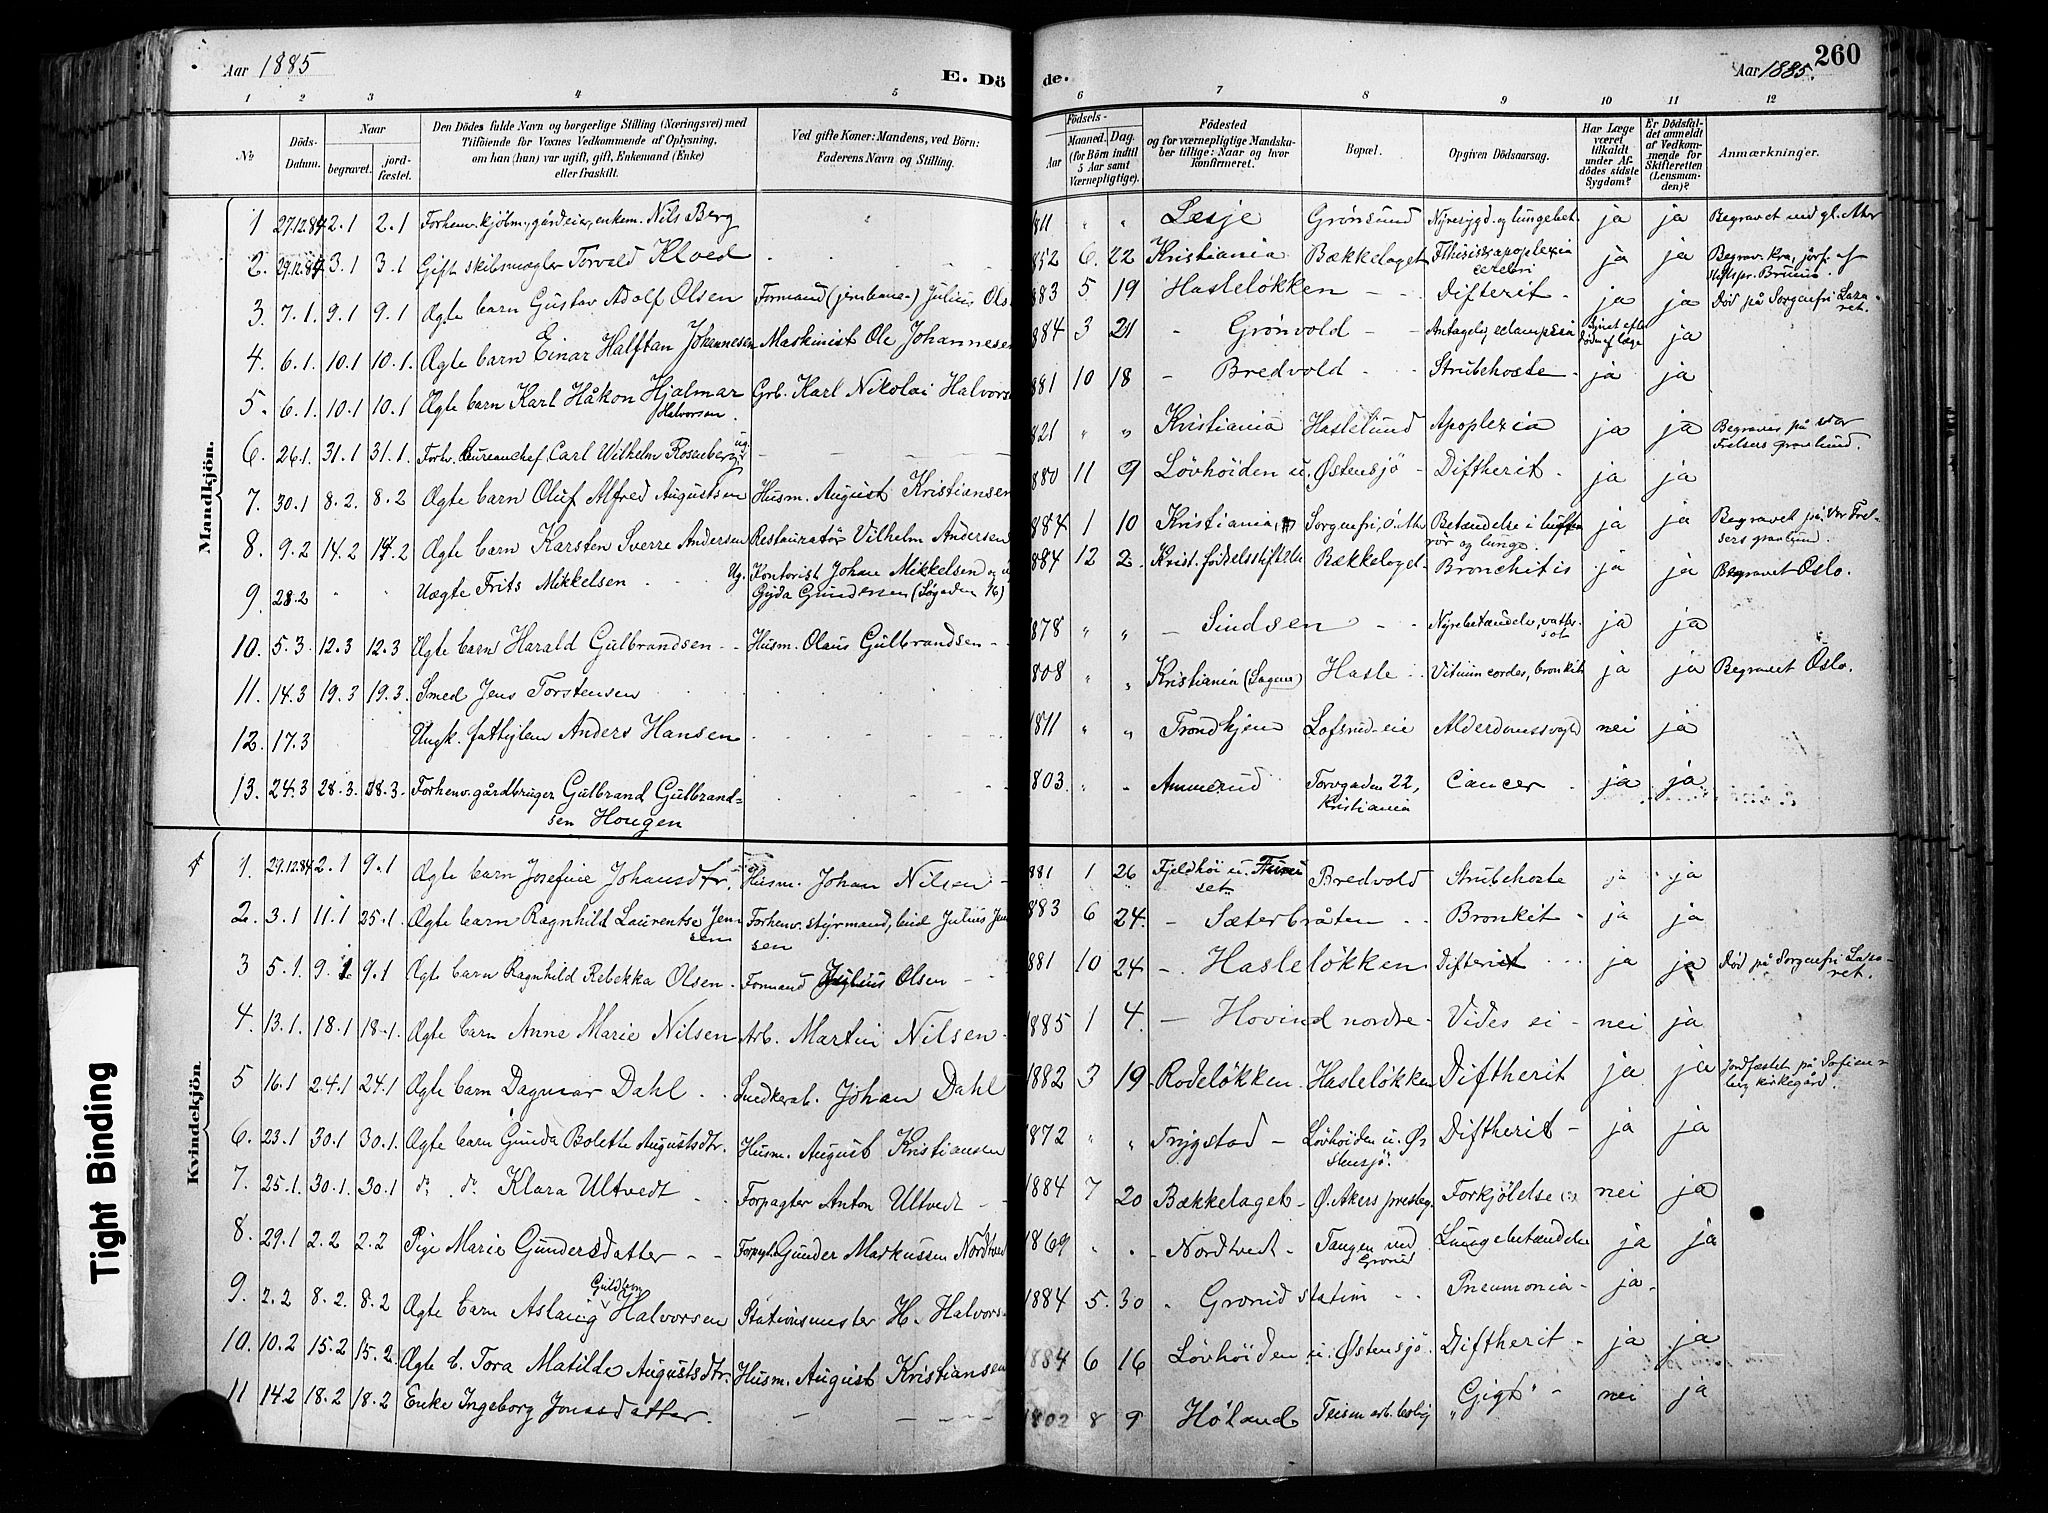 Aar 1885
E. Dö
de.
Aar 1885.
260
1 2 3 4 5 6 7 8 9 10 11 12
No
Döds-Datum.
Naar
begravet.
jord-fæstet.
Den Dödes fulde Navn og borgerlige Stilling (Næringsvei) med
Tilföiende for Voxnes Vedkommende af Oplysning,
om han (hun) var ugift, gift, Enkemand (Enke)
eller fraskilt.
Ved gifte Koner: Mandens, ved Börn:
Faderens Navn og Stilling.
Födsels-
Aar
Maaned. Dag.
(for Börn indtil
5 Aar samt
Værnepligtige).
Födested
og for værnepligtige Mandska-
ber tillige: Naar og hvor
konfirmeret.
Bopæl.
Opgiven Dödsaarsag.
Har Læge
været
tilkaldt
under Af-
dödes sidste
Sygdom?
Er Dödsfal-
det anmeldt
af Vedkom-
mende for
Skifteretten
(Lensman-
den)?
Anmærkninger.
Mandkjön.
1 27.12.84 2.1 2.1 Forhenv. kjøbm., gårdeier, enkem. Nils Berg 811 " " Lesje Grønsund Nyresygd. og lungebet. ja ja Begravet ved gl. Aker
2. 29.12.84 3.1 3.1 Gift skibsmægler Torvald Klved 852 6. 22 Kristiania Bækkelaget Fthisis, apoplexia cerebri ja ja Begrav. Kra, jorf. af stiftspr. Bruun.
3. 7.1. 9.1 9.1 Ægte barn Gustav Adolf Olsen Formand (jernbane-) Julius Ols 883 5 19 Hasleløkken - - Difterit - ja ja Død på Sorgenfri Lazaret.
4. 6.1. 10.1 10.1. Ægte barn Einar Halftan Johannesen Maskinist Ole Johannesen 884 3 21 " Grønvold - - Antagelig eclampsia Synet efter døden af læge ja
5. 6.1. 10.1 10.1 Ægte barn Karl Håkon Hjalmar Halvorsen. Grb. Karl Nikolai Halvors 881 10 18 - Bredvold - - Strubehoste - ja ja
6. 26.1. 31.1 31.1. Forh. Bureauchef, Carl Wilhelm Rosenberg, ug. 821 " " Kristiania Haslelund Apoplexia ja ja Begraves på Vor Frelsers gravlund.
7. 30.1 8.2. 8.2 Ægte barn Oluf Alfred Augustsen Husm. August Kristiansen 880 11 9 Løvhøiden u. Østensjø - Diftherit - ja ja
8. 9.2 14.2 14.2 Ægte barn Karsten Sverre Andersen Restauratør Vilhelm Andersen 884 1 10 Kristiania, Sorgenfri, Ø. Aker Betændelse i luftrør og lunge. ja ja Begravet på Vor Frelsers gravlund.
9. 28.2 " " Uægte Frits Mikkelsen . . . Ug. Kontorist Johan Mikkelsen og Gyda Gundersen (Søgaden 16) 884 12 2. Krist. fødselsstiftelse Bækkelaget - Bronchitis ja ja Begravet Oslo.
10. 5.3. 12.3 12.3 Ægte barn Harald Gulbrandsen - - Husm. Olaus Gulbrandsen - - 878 " " - Sindsen - - Nyrebetændelse, vattersot ja ja
11. 14.3 19.3 19.3. Smed Jens Torstensen 808 " " Kristiania (Sagene) Hasle . . Vitium cordes, bronkit ja ja Begravet Oslo.
12. 17.3 Ungk. fattiglem Anders Hansen 1811 " " Trondhjem Lofsrud-eie Alderdomssvagh nei ja
13. 24.3 28.3. 28.3. Forhenv. gårdbruger Gulbrand Gulbrandsen Hougen 803. " " Ammerud Torvgaden 22, Kristiania Cancer - ja ja
Kvindekjön
1. 29.12.84 2.1 9.1 Ægte barn Josefine Johansdtr. Husm. Johan Nilsen - 881 1 26 Fjeldhøi u. Furuset Bredvold Strubehoste ja ja
2. 3.1 11.1 25.1. Ægte barn Ragnhild Laurentse Jensen Forhenv. styrmand, Julius Jensen 883 6 24. - Sæterbråten - - Bronkit - ja ja
3 5.1. 9.1 9.1 Ægte barn Ragnhild Rebekka Olsen. Formand Julius Olsen - 881 10 24 - Hasleløkken Difterit . . . ja ja Død på Sorgenfri Lazaret.
4. 13.1. 18.1 18.1. Ægte barn Anne Marie Nilsen Arb. Martin Nilsen - 1885 1 4. - Hovind nordre - Vides ei - nei ja
5 16.1 24.1 24.1 Ægte barn Dagmar Dahl . . Snedkerab. Johan Dahl 1882 3 19 Rodeløkken. Hasleløkken Diftherit ja ja Jordfæstet på Sofienberg kirkegård.
6. 23.1 30.1 30.1. Ægte barn Gunda Bolette Augustsdtr. Husm. August Kristiansen 1872 " " Trygstad - Løvhøiden u. Østensjø. Diftherit - ja ja
7. 25.1. 30.1. 30.1 do. do. Klara Ultvedt - . Forpagter Anton Ultvedt - 1884 7 20 Bækkelaget - Ø. Akers presteg. Forkjølelse (:) nei ja
8. 29.1 2.2 2.2 Pige Marie Gundersdatter - - Forpgt. Gunder Markussen Nordtvedt 1869 " " - Nordtvedt - Tangen ved Grorud Lungebetændelse ja ja
9. 2.2 8.2. 8.2 Ægte barn Aslaug Guldborg Halvorsen Stationsmester H. Halvors 1884 5. 30 " Grorud station . . Pneumonia - ja -
10. 10.2 15.2 15.2. Ægte b. Tora Matilde Augustsdtr. Husm. August Kristiansen 1884 6 16 Løvhøiden u. Østensjø Diftherit - ja ja
11 14.2 18.2 18.2 Enke Ingeborg Jonasdatter. - - - 1802 8 9 Høland Teisen arb.bolig "Gigt" - nei ja
Tight Binding